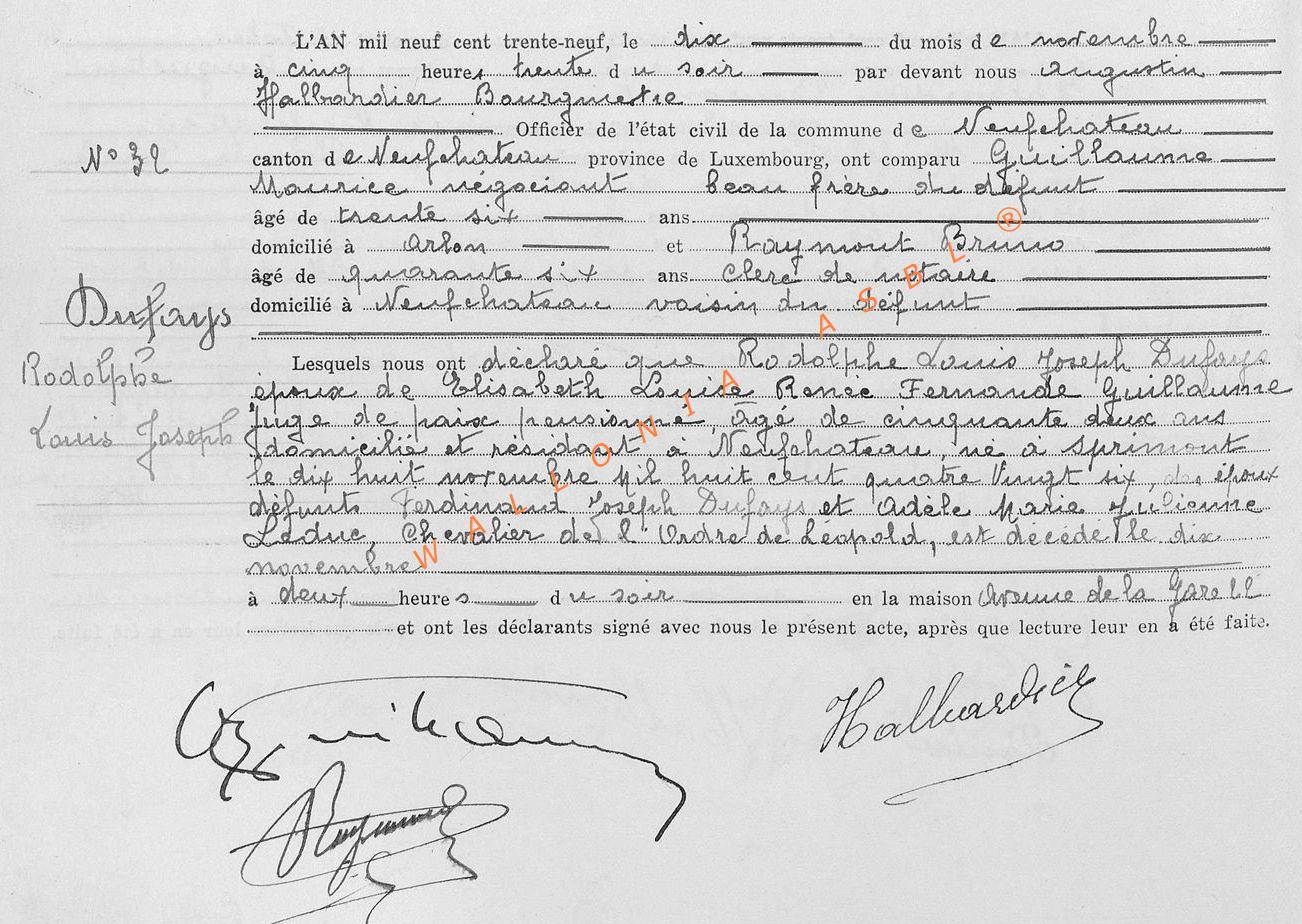 L'AN mil neuf cent trente-neuf, le dix du mois de novembre
à cinq heures trente du soir par devant nous Augustin
Halbardier Bourgmestre
Officier de l'état civil de la commune de Neufchateau
N° 32
canton de Neufchateau province de Luxembourg, ont comparu Guillaume
Maurice négociant beau frère du défunt
âgé de trente six ans
domicilié à Arlon et Raymont Bruno
âgé de quarante six ans clerc de notaire
domicilié à Neufchateau voisin du défunt
Dufays
Rodolphe
Louis Joseph
Lesquels nous ont déclaré que Rodolphe Louis Joseph Dufays
époux de Elisabeth Louise Renée Fernande Guillaume
juge de paix pensionné, âgé de cinquante deux ans
domicilié et résidant à Neufchateau, né à Sprimont
le dix huit novembre mil huit cent quatre vingt six, des époux
défunts Ferdinand Joseph Dufays et Adèle Marie Julienne
Leduc, Chevalier de l'Ordre de Léopold, est décédé le dix
novembre
à deux heures du soir en la maison Avenue de la Gare
et ont les déclarants signé avec nous le présent acte, après que lecture leur en a été faite.
WALLONIA ASBL ®
Halbardier